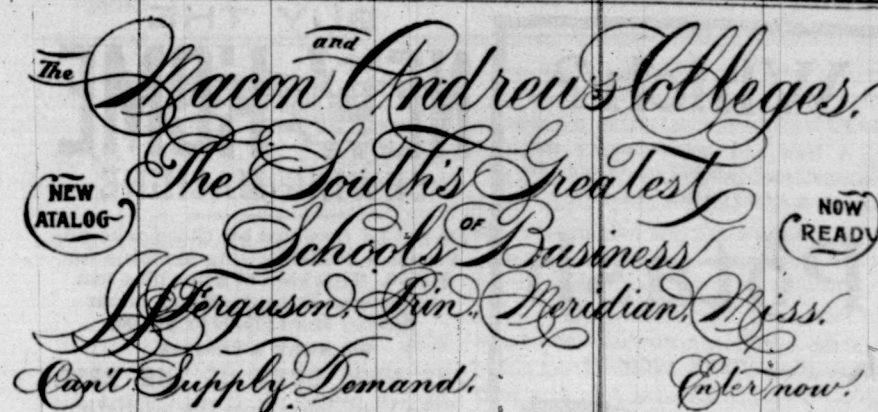 The Macon and Andrews Colleges.
The South's Greatest
NEW
ATALOG
Schools OF Business
NOW
READY
JJ Ferguson, Prin., Meridian, Miss.
Can't Supply Demand. Enter now.